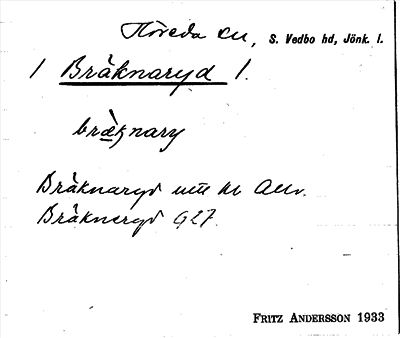 Höreda sn, S. Vedbo hd, Jönk. l.
1 Bräknaryd 1.
bräknary
Bräknaryd
Bräknaryd G27.
FRITZ ANDERSSON 1933